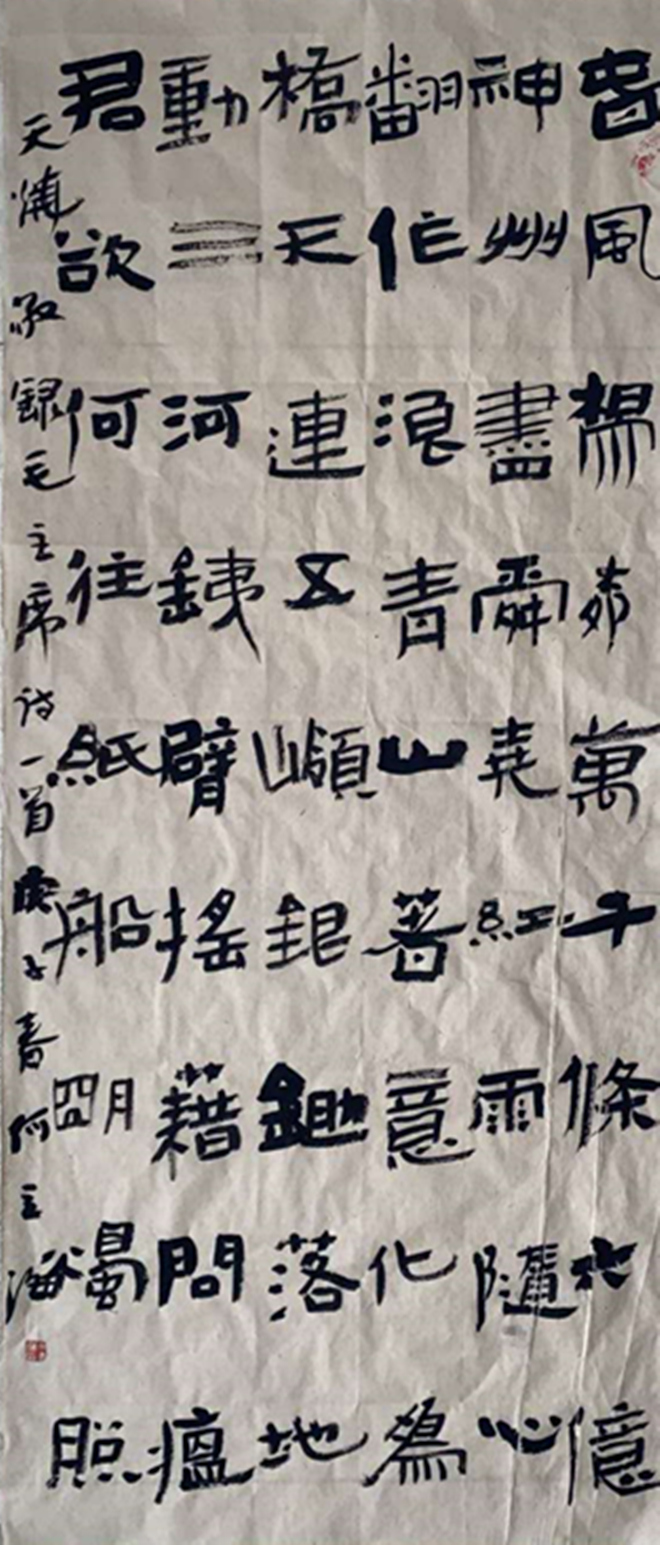 春風楊柳萬千條六億
神州盡舜堯紅雨隨心
翻作浪青山著意化為
橋天連五嶺銀鋤落地
動三河銕臂搖藉問瘟
君欲何往紙船朙燭照
天燒 敬録毛主席诗一首庚子春何立海